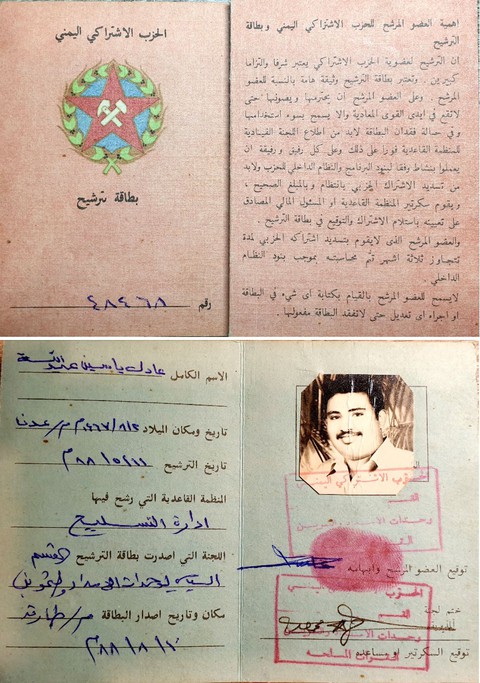 الحزب الاشتراكي اليمني
بطاقة ترشيح
رقم ٤٨٤٦٨
اهمية العضو المرشح للحزب الاشتراكي اليمني وبطاقة
الترشيح
ان الترشيح لعضوية الحزب الاشتراكي يعتبر شرفا والتزاما
كبيرين . وتعتبر بطاقة الترشيح وثيقة هامة بالنسبة للعضو
المرشح . وعلى العضو المرشح ان يحترمها ويصونها حتى
لاتقع في ايدي القوى المعادية والا يسمح بسوء استخدامها
و في حالة فقدان البطاقة لابد من اطلاع اللجنة القيادية
للمنظمة القاعدية فورا على ذلك وعلى كل رفيق ورفيقة ان
يعملوا بنشاط وفقا لبنود البرنامج والنظام الداخلي للحزب ولابد
من تسديد الاشتراك الحزبي بانتظام وبالمبلغ الصحيح ،
ويقوم سكرتير المنظمة القاعدية او المسئول المالي المصادق
على تعيينه باستلام الاشتراك والتوقيع في بطاقة الترشيح .
والعضو المرشح الذى لايقوم بتسديد اشتراكه الحزبي لمدة
تتجاوز ثلاثة اشهر تتم محاسبته بموجب بنود النظام
الداخلي .
لايسمح للعضو المرشح بالقيام بكتابة اى شيء في البطاقة
او اجراء اى تعديل حتى لاتفقد البطاقة مفعولها .
الاسم الكامل عادل ياسين عبدالله
تاريخ ومكان الميلاد
تاريخ الترشيح
المنظمة القاعدية التي رشح فيها
ادارة التسليح
اللجنة التي اصدرت بطاقة الترشيح القسم
السياسي لوحدات الامداد والتموين
مكان وتاريخ اصدار البطاقة
٨٨/٨/١٠م
الحزب الاشتراكي اليمني
توقيع العضو المرشح وابهامه
ختم لجنة
الحزب
القوات المسلحة
توقيع السكرتير او مساعده